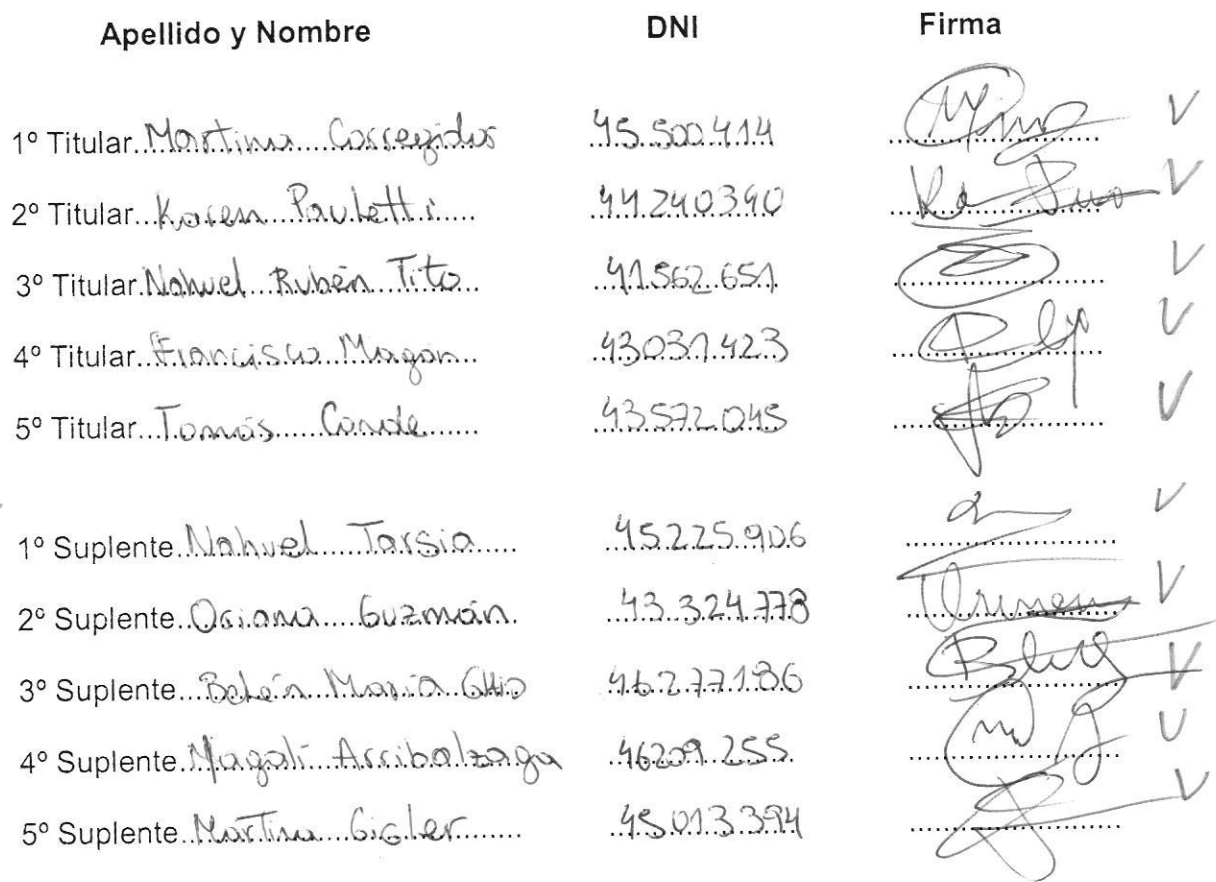 Apellido y Nombre DNI Firma
1º Titular Martina Corregidor 45.500.414 V
2º Titular Karen Pauletti 44.240340 V
3º Titular Nahuel Rubén Tito 41.562.651 V
4º Titular Francisco Magan 43031.423 V
5º Titular Tomás Conde 43.572.045 V
1º Suplente Nahuel Tarsia 45.225.906 V
2º Suplente Oriana Guzmán 43.324.778 V
3º Suplente Belén María 46.277.186 V
4º Suplente Magalí Arribalzaga 46209.255 V
5º Suplente Martina Gigler 45.013.394 V